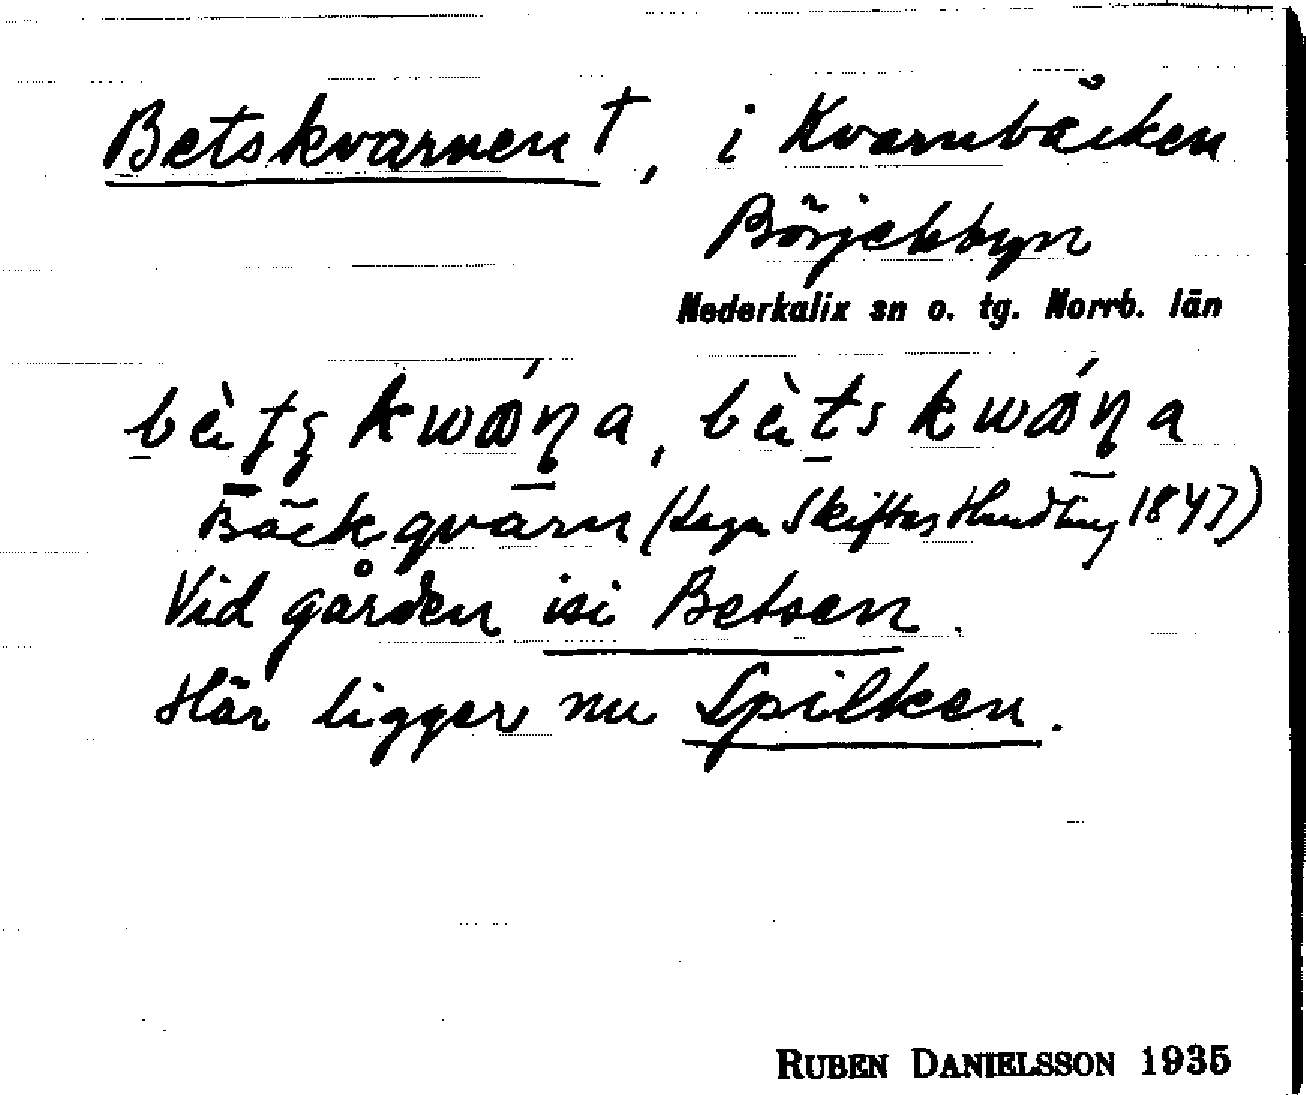 Betskvarnen †, i Kvarnbäcken
Börjelsbyn
Nederkalix sn o. tg. Norrb. län
bèts kwáṇa, bèts kwáṇa
Bäckqvarn (Laga Skiftes Handling 1847)
Vid gården isi Betsen.
Här ligger nu Spilken.
RUBEN DANIELSSON 1935